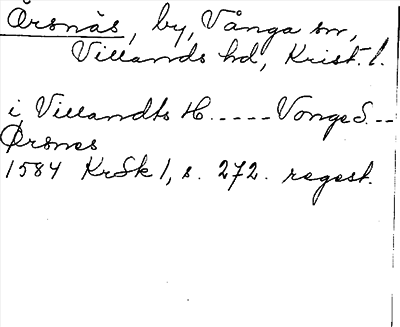 Örsnäs, by, Vånga sn,
Villands hd, Krist. l.
i Villandts H. ---- Vonge S. --
Ørsnes
1584 KrSk 1, s. 272. regest.